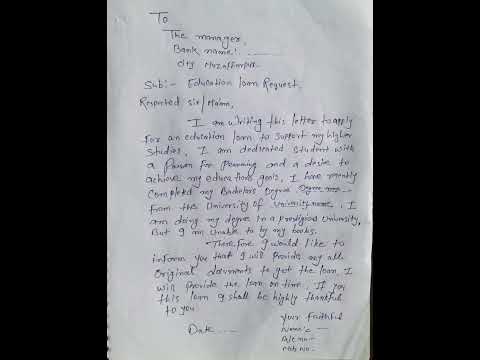 To
The manager,
Bank name:.........
city Muzaffarpur.
Sub:- Education loan Request.
Respected sir/Maam,
I am writing this letter to apply
for an education loan to support my higher
Studies. I am dedicated student with
a and a desire to
achieve my educations goals, I have recently
Completed my Bachelors Degree Degree name
from the University of University name. I
am doing my degree in a prestigious University,
But I am unable to by my books.
Therefore I would like to
inform you that I will provide my all
original documents to get the loan. I
will provide the loan on time. If you
this loan I shall be highly thankful
to you.
your faithful
Date......
Name:-
A/c no-
mob no-